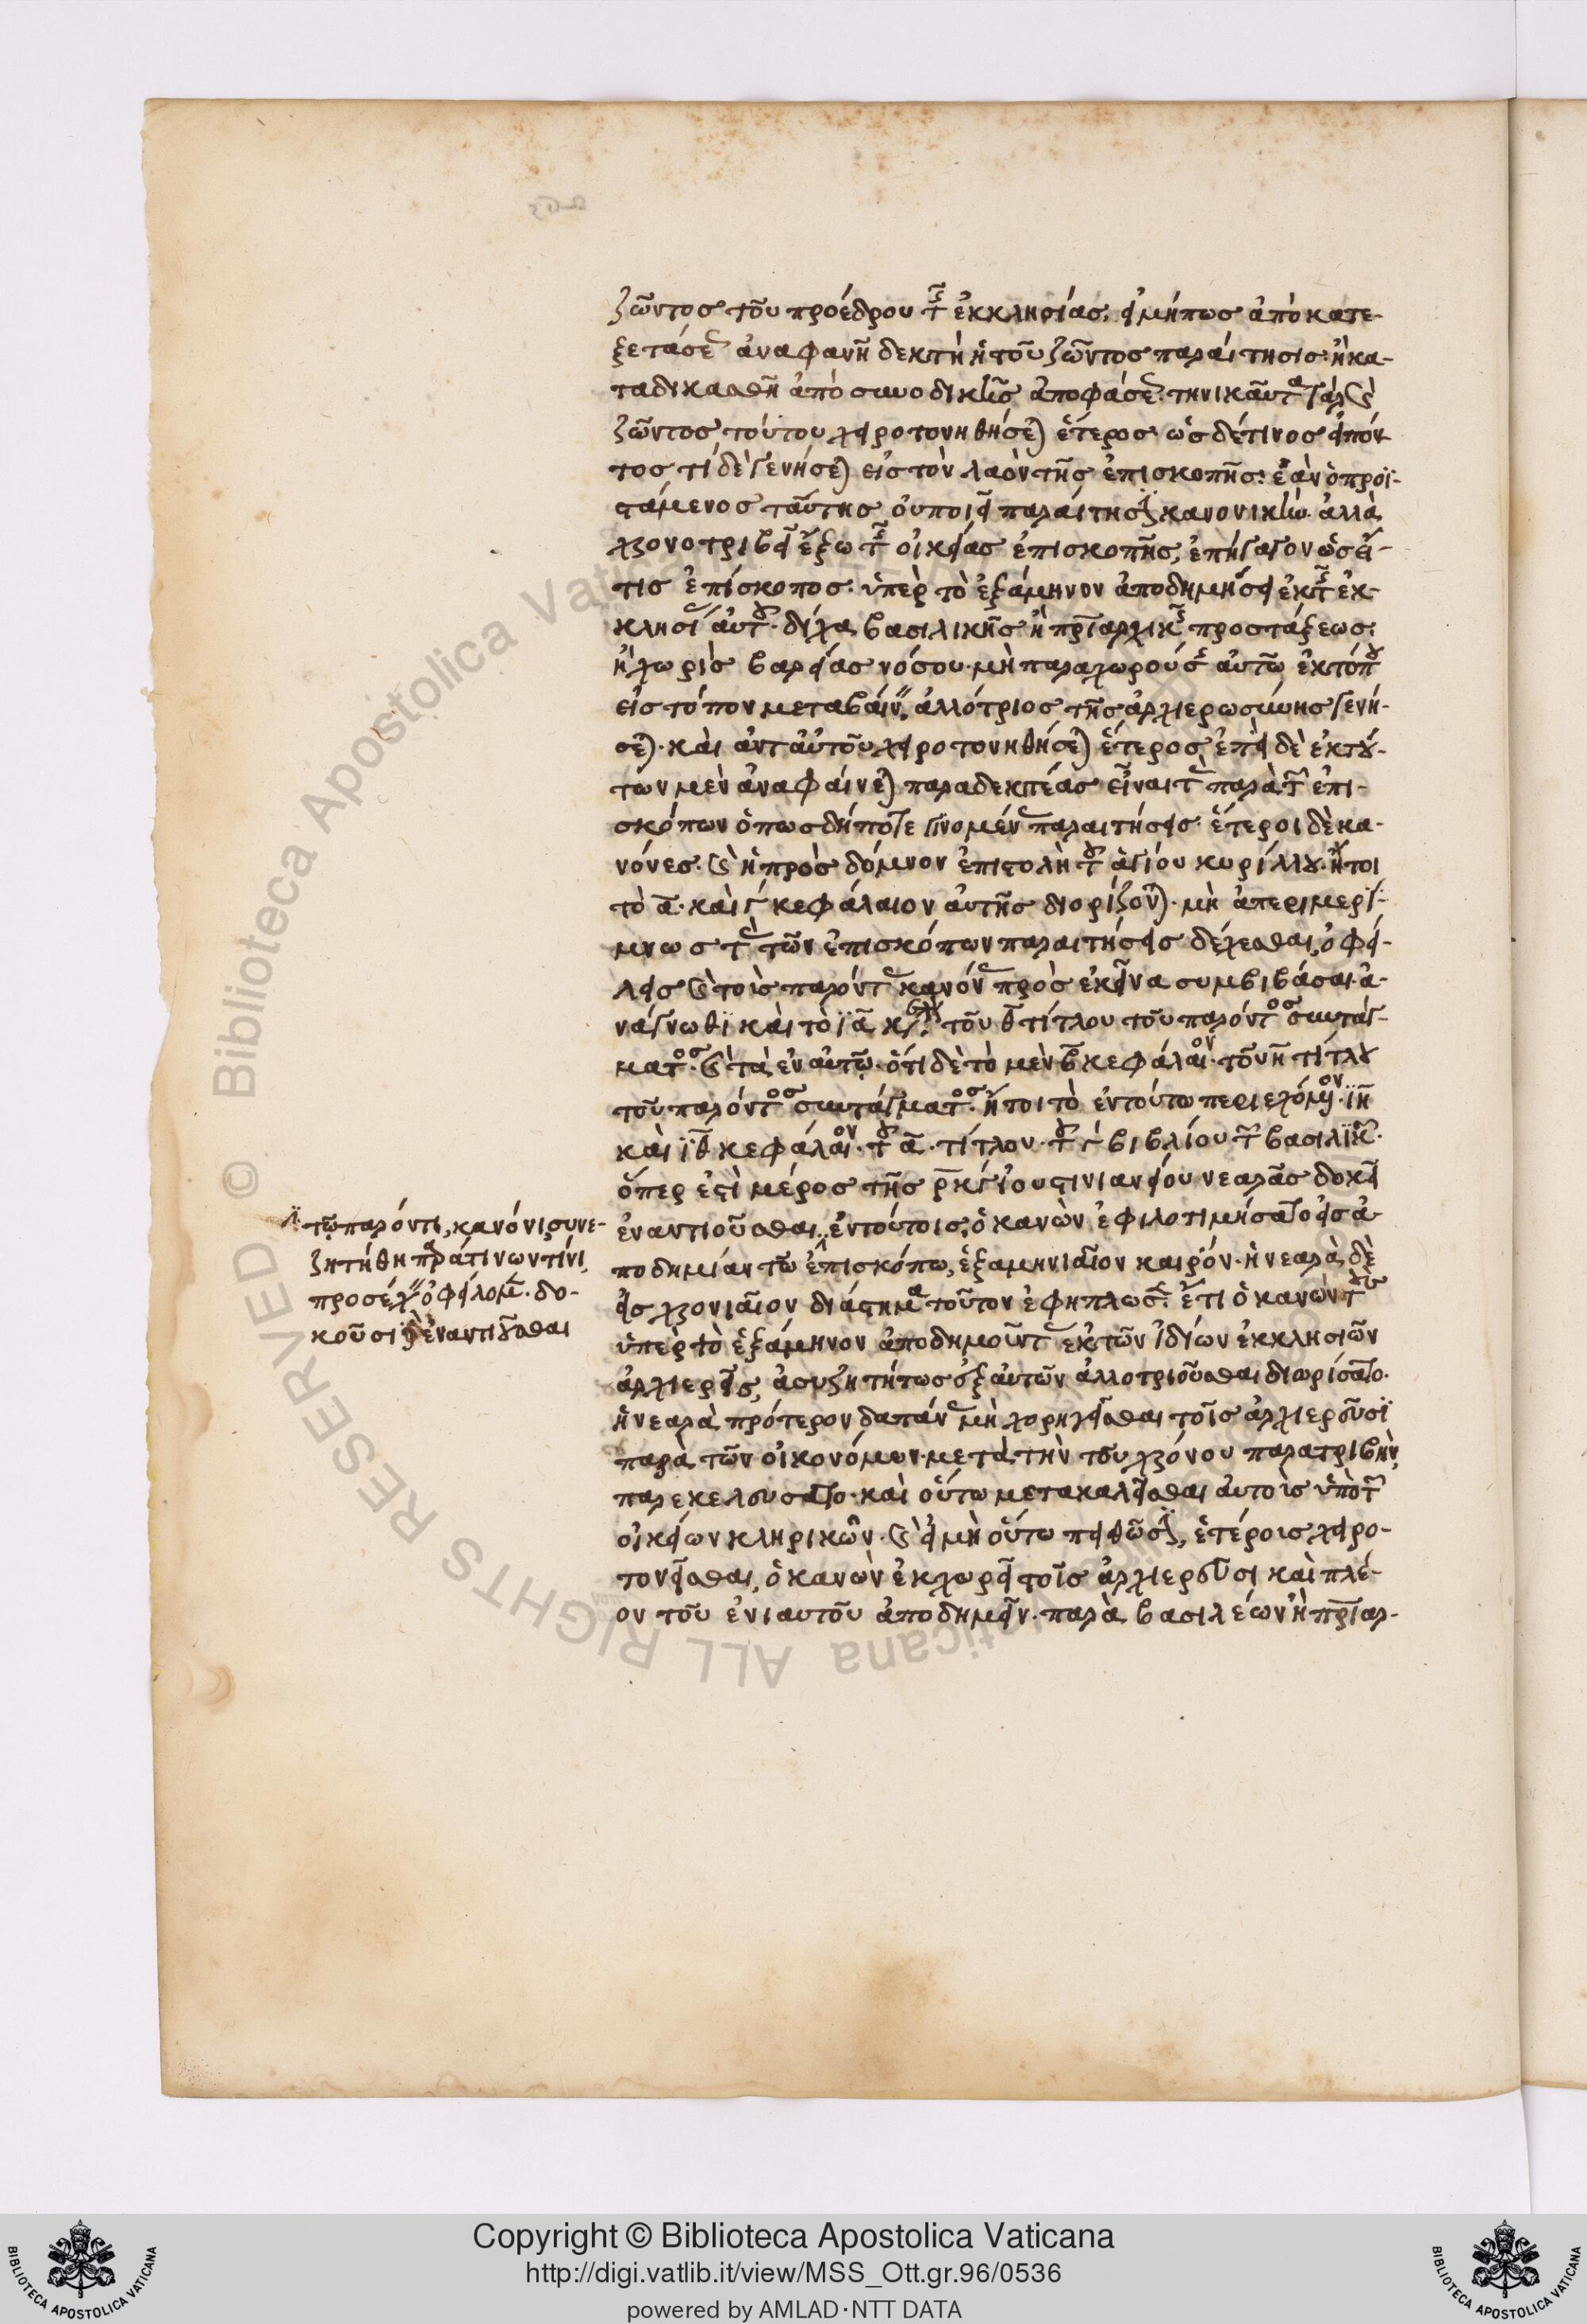 ζῶντος τοῦ προέδρου τῆς ἐκκλησίας, εἰ μήπως ἀπὸ κατε-
ξετάσεως ἀναφανῆ δεκτὴ ἡ τοῦ ζῶντος παραίτησις· ἢ κα-
ταδικασθῆ ἀπὸ συνοδικῆς ἀποφάσεως. τηνικαῦτα γὰρ καὶ
ζῶντος τούτου χειροτονηθήσεται ἕτερος· ὡς δέ τινος εἰπόν-
τος τί δὲ γενήσεται εἰς τὸν λαὸν τῆς ἐπισκοπῆς· ἐὰν ὁ προϊ-
στάμενος ταύτης οὐ ποιεῖ παραίτησιν κανονικὴν ἀλλὰ
χρονοτριβεῖ ἔξω τῆς οἰκείας ἐπισκοπῆς, ἐπήγαγον ὡς εἴ-
τις ἐπίσκοπος ὑπὲρ τὸ ἑξάμηνον ἀποδημήσει ἐκ τῆς ἐκ-
κλησίας αὐτοῦ. δίχα βασιλικῆς ἢ πριαρχικῆς προστάξεως·
ἢ χωρὶς βαρείας νόσου μὴ παραχωρούσης αὐτῶ ἐκ τόπου
εἰς τόπον μεταβαίνειν, ἀλλότριος τῆς ἀρχιερωσύνης γενή-
σεται· καὶ ἀντ αὐτοῦ χειροτονηθήσεται ἕτερος ἐπεὶ δὲ ἐκ τού-
των μὲν ἀναφαίνεται παραδεκτέας εἶναι τὰς παρὰ τῶν ἐπι-
σκόπων ὁπωσδήποτε γινομένας παραιτήσεις· ἕτεροι δὲ κα-
νόνες· καὶ ἡ πρὸς δόμνον ἐπιστολὴ τοῦ ἁγίου κυρίλλου· ἤτοι
τὸ α καὶ γ κεφάλαιον αὐτῆς διορίζονται· μὴ ἀπεριμερί-
μνως τὰς τῶν ἐπισκόπων παραιτήσεις δέχεσθαι, ὀφεί-
λεις καὶ τοῖς παροῦντας κανόνας πρὸς ἐκεῖνα συμβιβάσαι. ἀ-
νάγνωθι καὶ τὸ ια κεφ. τοῦ θ τίτλου τοῦ παρόντος συντάγ-
ματος· καὶ τὰ ἐν αὐτῶ. ὅτι δὲ τὸ μὲν β κεφάλαιον τοῦ η τίτλου
τοῦ παρόντος συντάγματος. ἤτοι τὸ ἐν τούτω περιεχόμενον· ιη
καὶ ιθ κεφάλαιον τοῦ α τίτλου τοῦ γ βιβλίου τῶν βασιλικῶν.
ὅπερ ἐστὶ μέρος τῆς ρκγ ἰουστινιανείου νεαρᾶς δοκεῖ
ἐναντιοῦσθαι ἐν τούτοις, ὁ κανὼν ἐφιλοτιμήσατο εἰς ἀ-
ποδημίαν τῶ ἐπισκόπω, ἑξαμηνιαῖον καιρόν· ἡ νεαρὰ δὲ
εἰς χρονιαῖον διάστημα τοῦτον ἐφήπλωσεν· ἔτι ὁ κανὼν τοὺς
ὑπὲρ τὸ ἑξάμηνον ἀποδημοῦντας ἐκ τῶν ἰδίων ἐκκλησιῶν
ἀρχιερεῖς, ἀσυζητήτως ἐξ αὐτῶν ἀλλοτριοῦσθαι διωρίσατο.
ἡ νεαρὰ πρότερον δαπάνας μὴ χορηγεῖσθαι τοῖς ἀρχιερεῦσι
παρὰ τῶν οἰκονόμων μετὰ τὴν τοῦ χρόνου παρατριβὴν,
παρεκελεύσατο· καὶ οὕτω μετακαλεῖσθαι αὐτοὺς ὑπὸ τῶν
οἰκείων κληρικῶν. καὶ εἰ μὴ οὕτω πεισθῶσιν, ἑτέροις χειρο-
τονεῖσθαι, ὁ κανὼν ἐκχωρεῖ τοῖς ἀρχιερεῦσι καὶ πλέ-
ον τοῦ ἐνιαυτοῦ ἀποδημεῖν· παρὰ βασιλέων ἢ πριαρ-
τῶ παρόντι, κανόνι συνε-
ζητήθη παρά τινων τίνι
προσέχειν ὀφείλομεν. δο-
κοῦσι γὰρ ἐναντιοῦσθαι
Copyright © Biblioteca Apostolica Vaticana
http://digi.vatlib.it/view/MSS_Ott.gr.96/0536
powered by AMLAD·NTT DATA
Biblioteca Apostolica Vaticana ALL RIGHTS RESERVED ©
BIBLIOTECA APOSTOLICA VATICANA
BIBLIOTECA APOSTOLICA VATICANA